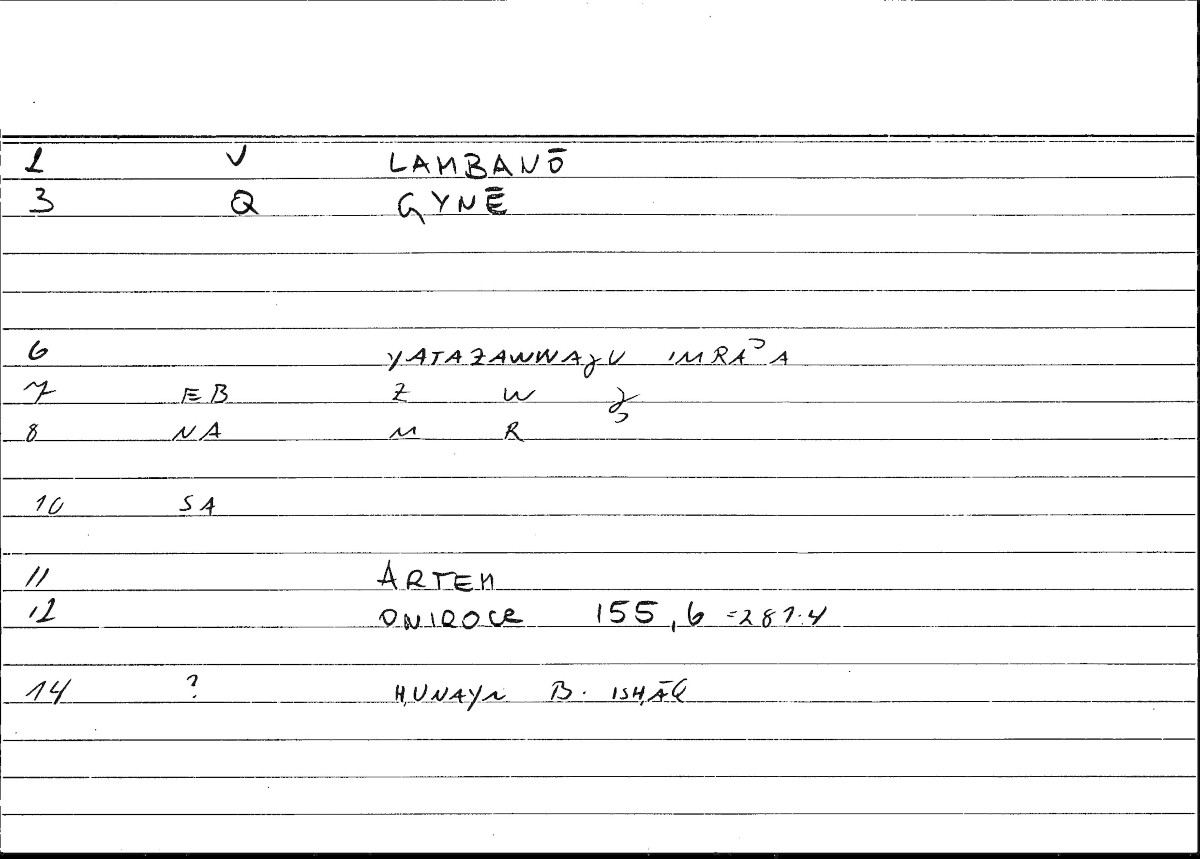 1 V LAMBANŌ
3 Q GYNĒ
6 YATAZAWWAǦU IMRAʾA
7 EB Z W Ǧ
8 NA M R ʾ
10 SA
11 ARTEM
12 ONIROCR 155,6 =287.4
14 ? ḤUNAYN B. ISḤĀQ